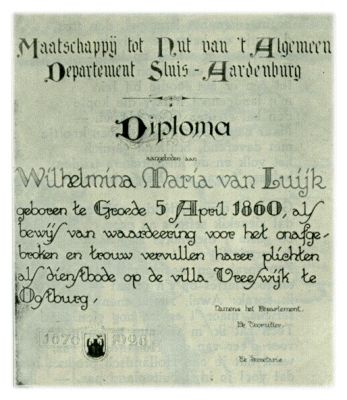 Maatschappij tot Nut van 't Algemeen
Departement Sluis - Aardenburg
Diploma
aangeboden aan
Wilhelmina Maria van Luijk
geboren te Groede 5 April 1860, als
bewijs van waardeering voor het onafge-
broken en trouw vervullen harer plichten
als dienstbode op de villa Vreeswijk te
Oostburg,
Namens het Departement.
De Voorzitter.
1876 1926
De Secretaris